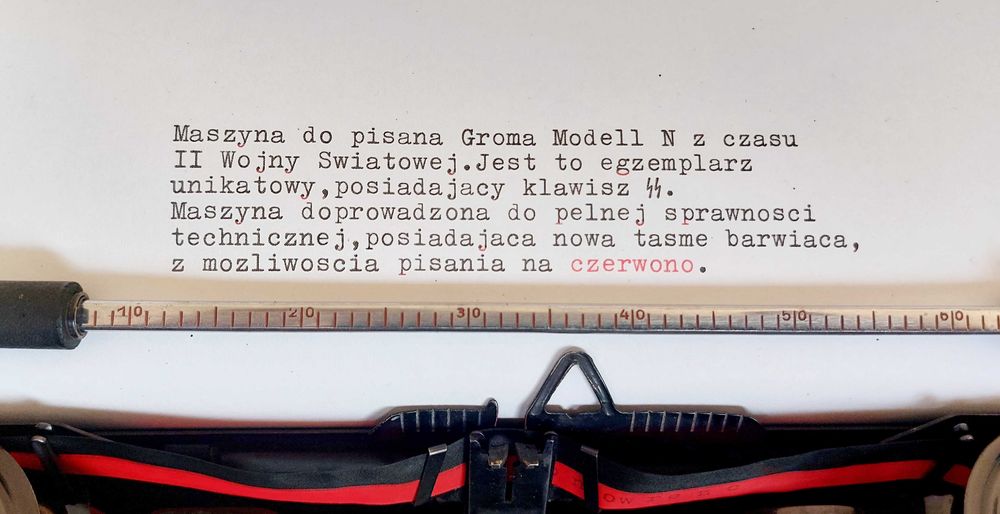 Maszyna do pisana Groma Modell N z czasu
II Wojny Swiatowej.Jest to egzemplarz
unikatowy,posiadajacy klawisz ᛋᛋ.
Maszyna doprowadzona do pelnej sprawnosci
technicznej,posiadajaca nowa tasme barwiaca,
z mozliwoscia pisania na czerwono.
10 20 30 40 50 60